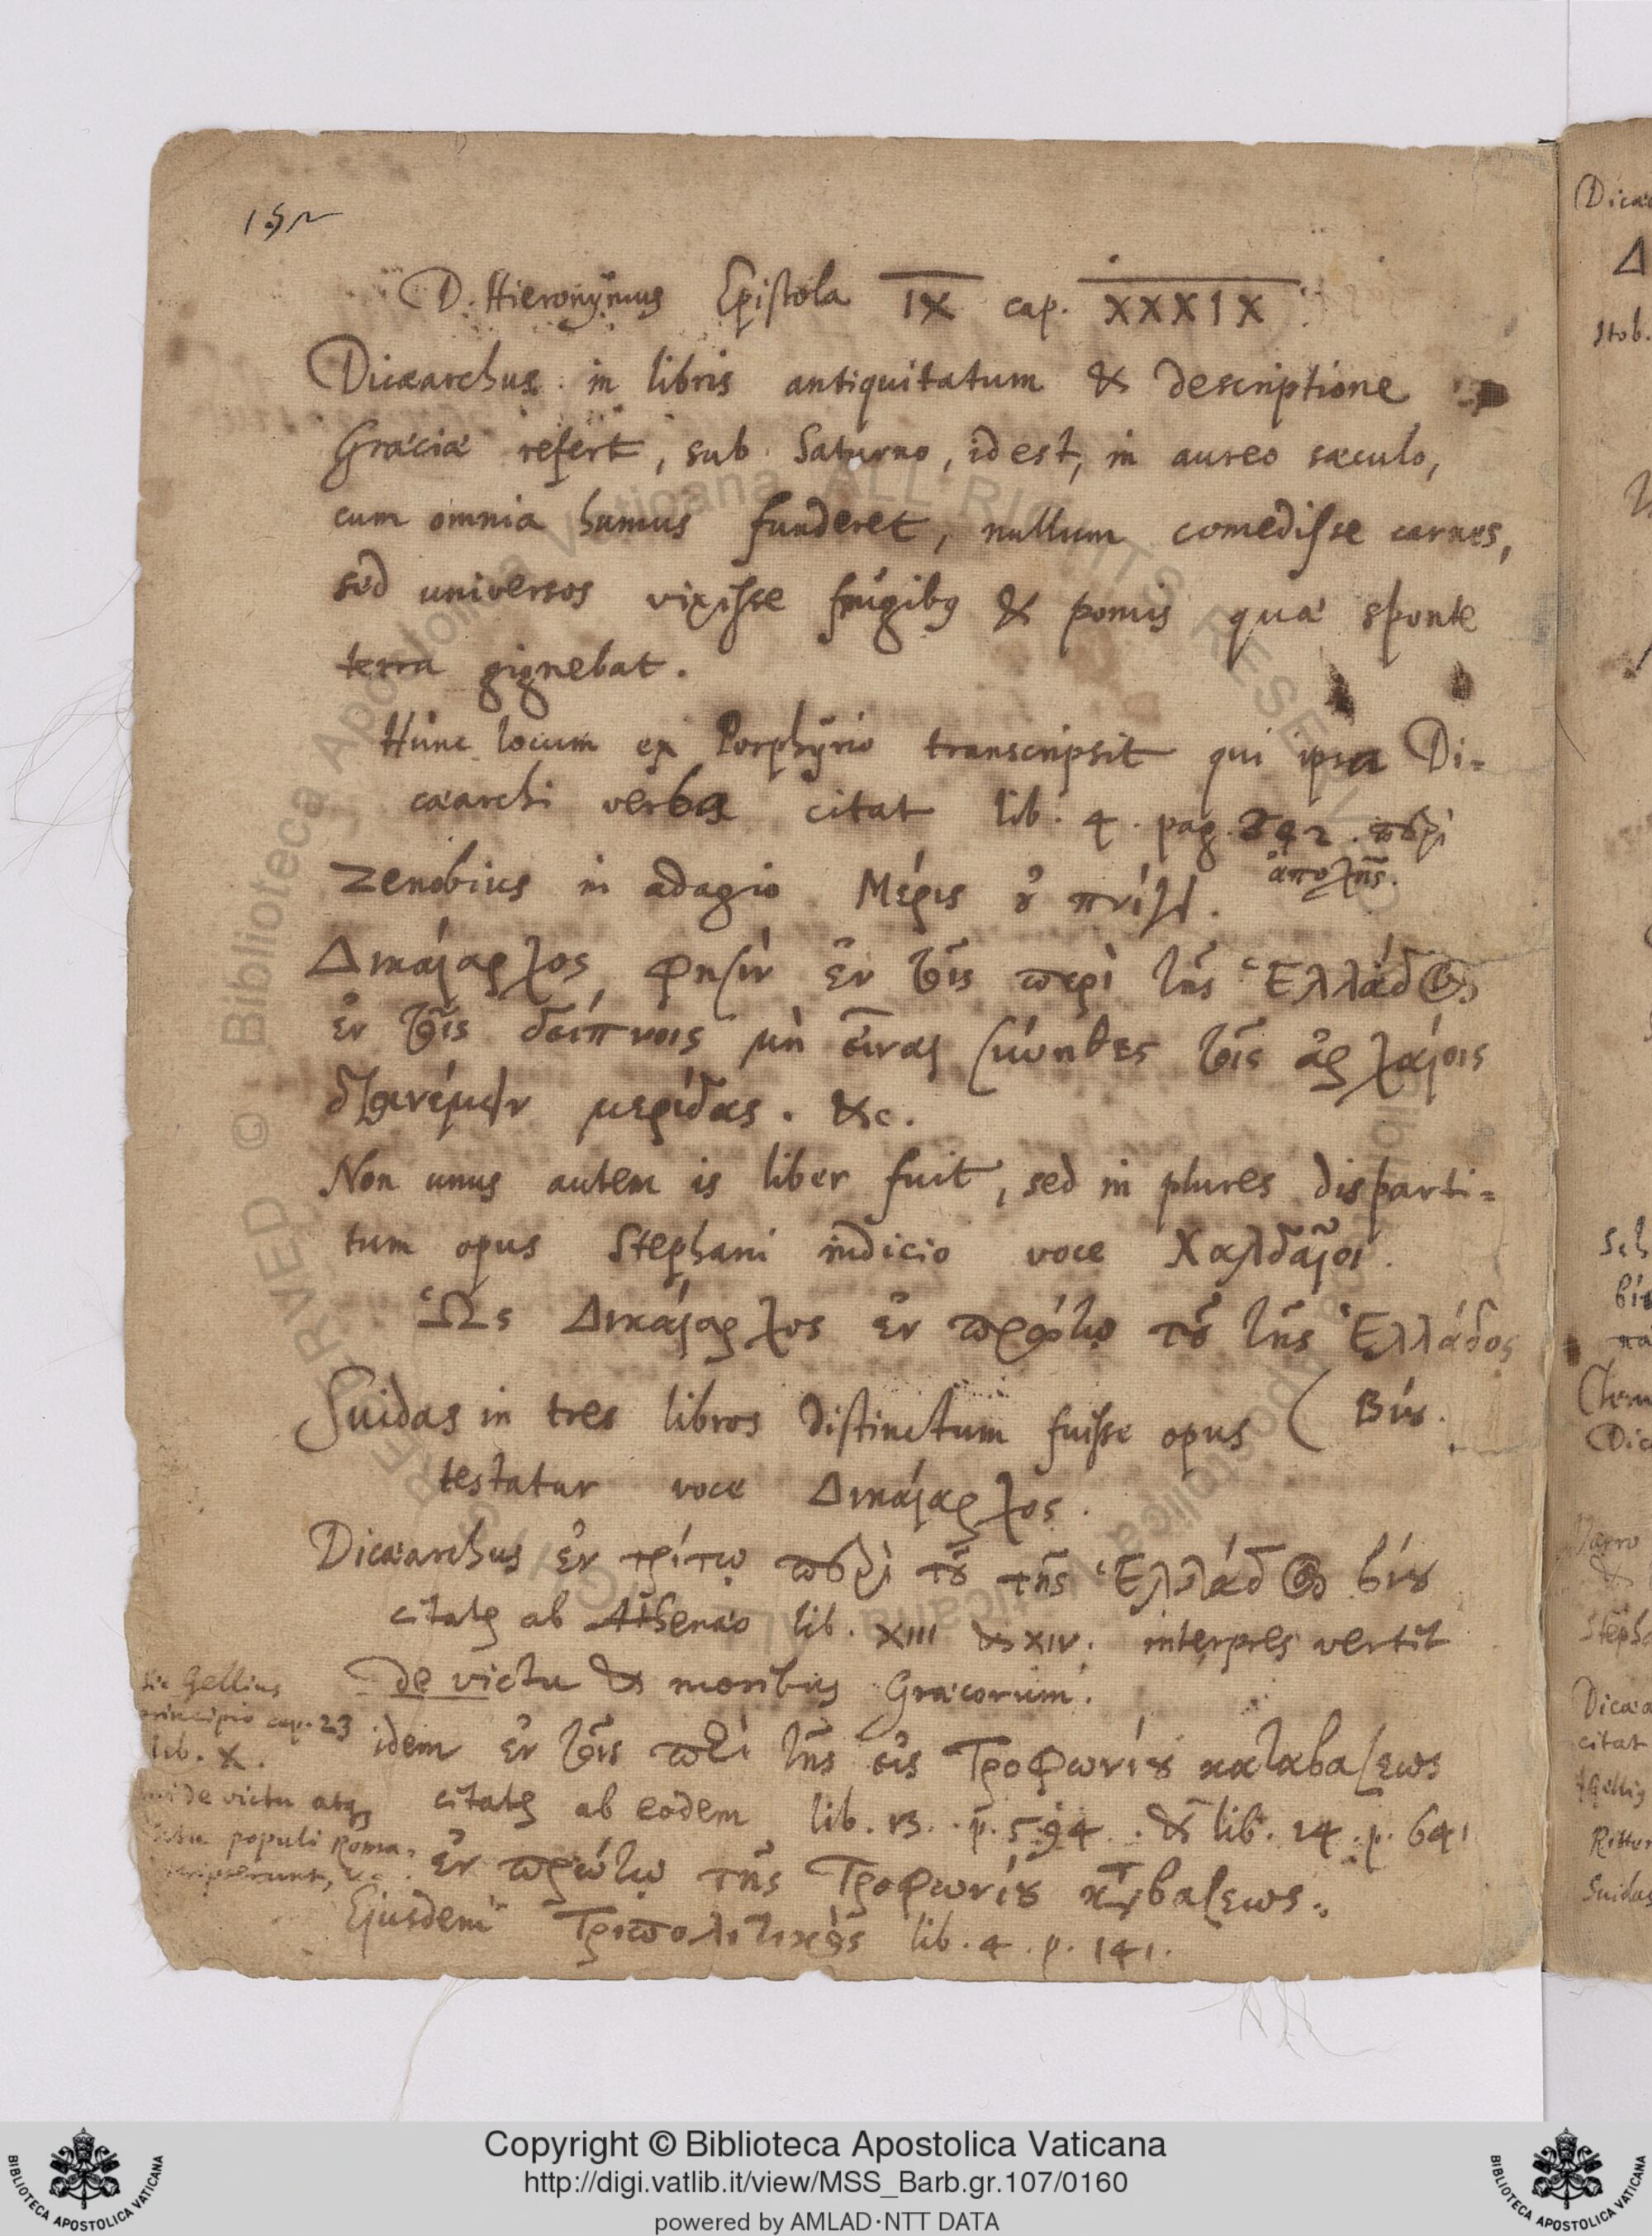 152
D. Hieronymus Epistola IX cap. XXXIX.
Dicæarchus in libris antiquitatum & descriptione
Græciæ refert, sub Saturno, id est, in aureo sæculo,
cum omnia humus funderet, nullum comedisse carnes,
sed universos vixisse frugibus & pomis quæ sponte
terra gignebat.
Hunc locum ex Porphyrio transcripsit qui ipsa Di-
cæarchi verba citat lib. 4. pag. 242. περὶ
ἀποχῆς.
Zenobius in adagio Μέρις οὐ πνίγει.
Δικαίαρχος φησὶν ἐν τοῖς περὶ τῆς Ἑλλάδος
ἐν τοῖς δείπνοις μὴ εἶναι σύνηθες τοῖς ἀρχαίοις
διανέμειν μερίδας. &c.
Non unus autem is liber fuit, sed in plures disparti-
tum opus Stephani indicio voce Χαλδαῖοι.
Ὡς Δικαίαρχος ἐν πρώτῳ τοῦ τῆς Ἑλλάδος
(βίου.
Suidas in tres libros distinctum fuisse opus
testatur voce Δικαίαρχος.
Dicæarchus ἐν τρίτῳ περὶ τοῦ τῆς Ἑλλάδος βίου
citatq ab Athenæo lib. XIII & XIV. interpres vertit
de victu & moribus Græcorum.
sic Gellius
principio cap. 23
lib. X.
de victu atq
populi Roma.
idem ἐν τοῖς περὶ τῆς εἰς Τροφωνίου καταβάσεως
citatq ab eodem lib. 13. p. 594. & lib. 14. p. 641
ἐν πρώτῳ τῆς Τροφωνίου καταβάσεως.
Ejusdem Τριπολιτικὸς lib. 4. p. 141.
Dicæ
Δ
Stob.
Sch
βίο
Clem
Dic
Varro
&
Steph
Dicæa
citat
Agelliq
Ritter
Suidas
© Biblioteca Apostolica Vaticana ALL RIGHTS RESERVED
Copyright © Biblioteca Apostolica Vaticana
http://digi.vatlib.it/view/MSS_Barb.gr.107/0160
powered by AMLAD·NTT DATA
BIBLIOTECA APOSTOLICA VATICANA
BIBLIOTECA APOSTOLICA VATICANA